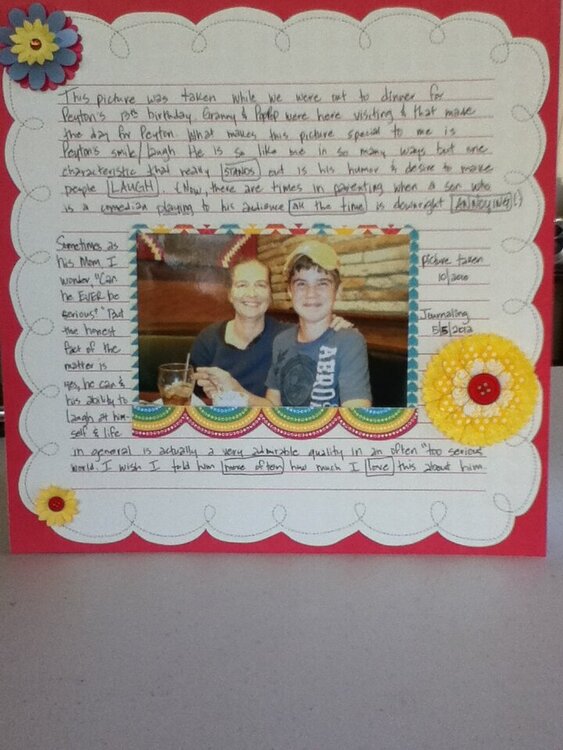 This picture was taken while we were out to dinner for
Peyton's 13th birthday. Granny & PopPop were here visiting & that made
the day for Peyton. What makes this picture special to me is
Peyton's smile/laugh. He is so like me in so many ways but one
characteristic that really STANDS out is his humor & desire to make
people LAUGH. Now, there are times in parenting when a son who
is a comedian playing to his audience all the time is downright ANNOYING!
Sometimes as
his Mom, I
wonder, "Can
he EVER be
serious?" But
the honest
fact of the
matter is
yes, he can &
his ability to
laugh at him-
self & life
Picture taken
10/2010
Journaling
5/5/2012
ABERCRO
in general is actually a very admirable quality in an often "too serious"
world. I wish I told him more often how much I love this about him.